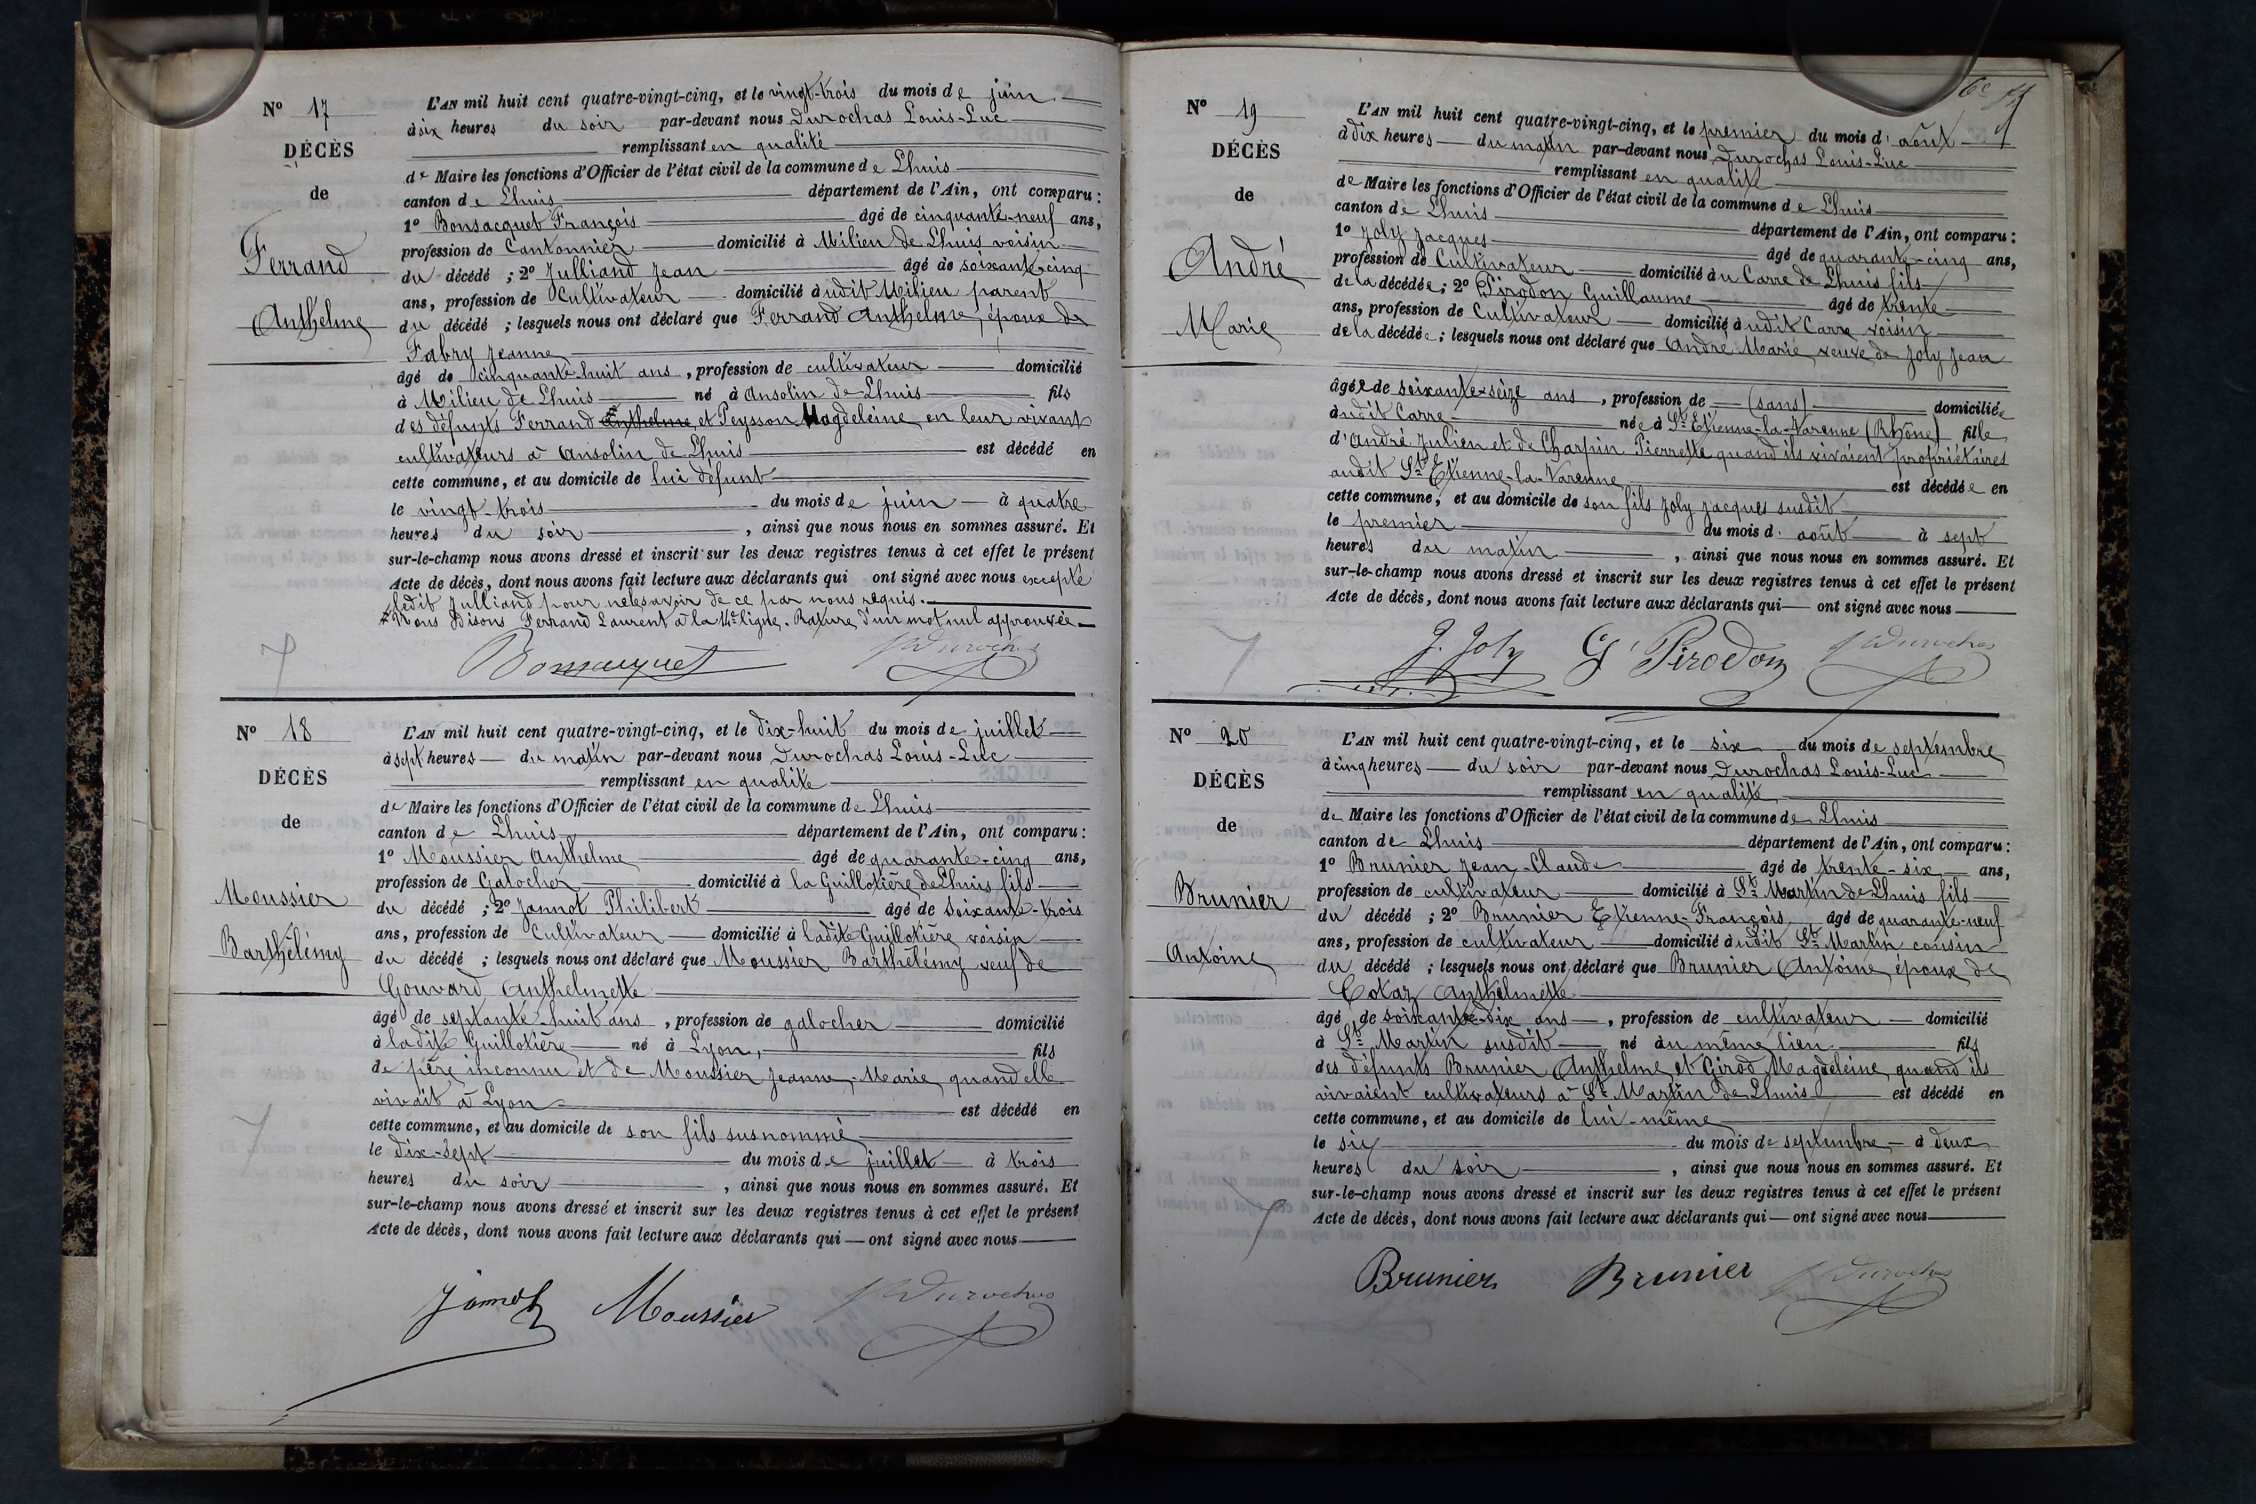 Nº 17
DÉCÈS
de
Ferrand
Anthelme
L'AN mil huit cent quatre-vingt-cinq, et le vingt-trois du mois de juin
à six heures du soir par-devant nous Durochas Louis-Luc
remplissant en qualité
de Maire les fonctions d'Officier de l'état civil de la commune de Lhuis
canton de Lhuis département de l'Ain, ont comparu :
1º Bonsacquet François âgé de cinquante-neuf ans,
profession de Cantonnier domicilié à Milieu de Lhuis voisin
du décédé ; 2º Julliand Jean âgé de soixante-cinq
ans, profession de Cultivateur domicilié audit Milieu parent
du décédé ; lesquels nous ont déclaré que Ferrand Anthelme, époux de
Fabry Jeanne
âgé de cinquante-huit ans, profession de cultivateur domicilié
à Milieu de Lhuis né à Ansolin de Lhuis fils
des défunts Ferrand Anthelme et Peysson Magdeleine en leur vivant
cultivateurs à Ansolin de Lhuis est décédé en
cette commune, et au domicile de lui défunt
le vingt-trois du mois de juin à quatre
heures du soir, ainsi que nous nous en sommes assuré. Et
sur-le-champ nous avons dressé et inscrit sur les deux registres tenus à cet effet le présent
Acte de décès, dont nous avons fait lecture aux déclarants qui ont signé avec nous excepté
ledit Julliand pour ne le savoir de ce par nous requis.
Nous Disons Ferrand Laurent à la 14e ligne. Rature d'un mot nul approuvée
Bonsacquet Durochas
Nº 18
DÉCÈS
de
Moussier
Barthélémy
L'AN mil huit cent quatre-vingt-cinq, et le dix-huit du mois de juillet
à sept heures du matin par-devant nous Durochas Louis-Luc
remplissant en qualité
de Maire les fonctions d'Officier de l'état civil de la commune de Lhuis
canton de Lhuis département de l'Ain, ont comparu :
1º Moussier Anthelme âgé de quarante-cinq ans,
profession de Galocher domicilié à la Guillotière de Lhuis fils
du décédé ; 2º Jannot Philibert âgé de soixante-trois
ans, profession de Cultivateur domicilié à ladite Guillotière voisin
du décédé ; lesquels nous ont déclaré que Moussier Barthélémy veuf de
Gouvard Anthelmette
âgé de septante-huit ans, profession de galocher domicilié
à ladite Guillotière né à Lyon, fils
de père inconnu et de Moussier Jeanne-Marie, quand elle
vivait à Lyon est décédé en
cette commune, et au domicile de son fils susnommé
le dix-sept du mois de juillet à trois
heures du soir, ainsi que nous nous en sommes assuré. Et
sur-le-champ nous avons dressé et inscrit sur les deux registres tenus à cet effet le présent
Acte de décès, dont nous avons fait lecture aux déclarants qui ont signé avec nous
Jannot Moussier Durochas
Nº 19
DÉCÈS
de
André
Marie
L'AN mil huit cent quatre-vingt-cinq, et le premier du mois d'août
à dix heures du matin par-devant nous Durochas Louis-Luc
remplissant en qualité
de Maire les fonctions d'Officier de l'état civil de la commune de Lhuis
canton de Lhuis département de l'Ain, ont comparu :
1º Joly Jacques âgé de quarante-cinq ans,
profession de Cultivateur domicilié au Carre de Lhuis fils
de la décédée ; 2º Pirodon Guillaume âgé de trente
ans, profession de Cultivateur domicilié audit Carre voisin
de la décédée ; lesquels nous ont déclaré que André Marie, veuve de Joly Jean
âgée de soixante-seize ans, profession de (sans) domiciliée
audit Carre née à St Etienne-la-Varenne (Rhône) fille
d'André Julien et de Charpin Pierrette quand ils vivaient propriétaires
audit St Etienne-la-Varenne est décédée en
cette commune, et au domicile de son fils Joly Jacques susdit
le premier du mois d'août à sept
heures du matin, ainsi que nous nous en sommes assuré. Et
sur-le-champ nous avons dressé et inscrit sur les deux registres tenus à cet effet le présent
Acte de décès, dont nous avons fait lecture aux déclarants qui ont signé avec nous
J. Joly G Pirodon Durochas
Nº 20
DÉCÈS
de
Brunier
Antoine
L'AN mil huit cent quatre-vingt-cinq, et le six du mois de septembre
à cinq heures du soir par-devant nous Durochas Louis-Luc
remplissant en qualité
de Maire les fonctions d'Officier de l'état civil de la commune de Lhuis
canton de Lhuis département de l'Ain, ont comparu :
1º Brunier Jean-Claude âgé de trente-six ans,
profession de cultivateur domicilié à St Martin de Lhuis fils
du décédé ; 2º Brunier Etienne-François âgé de quarante-neuf
ans, profession de cultivateur domicilié audit St Martin cousin
du décédé ; lesquels nous ont déclaré que Brunier Antoine, époux de
Cotaz Anthelmette
âgé de soixante-dix ans, profession de cultivateur domicilié
à St Martin susdit né au même lieu fils
des défunts Brunier Anthelme et Girod Magdeleine, quand ils
vivaient cultivateurs à St Martin de Lhuis est décédé en
cette commune, et au domicile de lui-même
le six du mois de septembre à deux
heures du soir, ainsi que nous nous en sommes assuré. Et
sur-le-champ nous avons dressé et inscrit sur les deux registres tenus à cet effet le présent
Acte de décès, dont nous avons fait lecture aux déclarants qui ont signé avec nous
Brunier Brunier Durochas